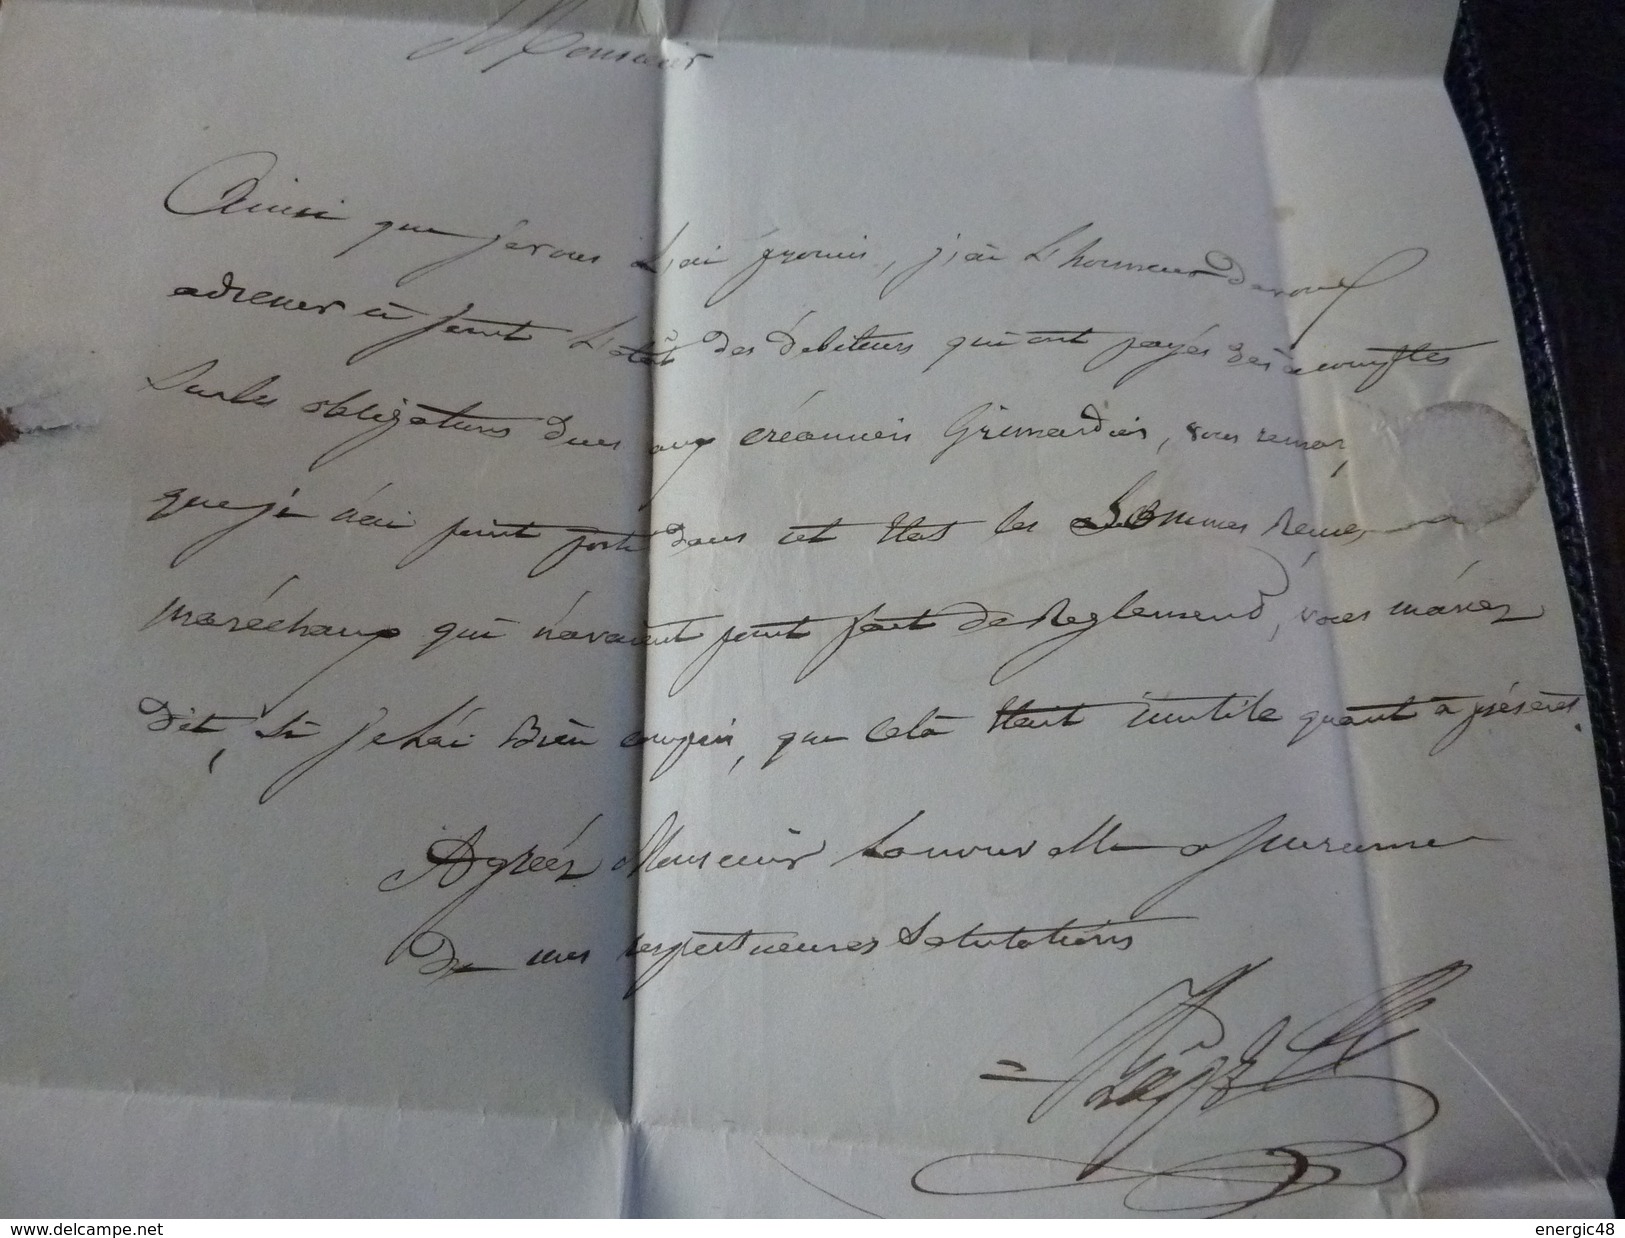 Monsieur
Ainsi que je vous l'ai promis, j'ai l'honneur de vous
adresser ci joint l'etat des débiteurs qui ont payés des acomptes
sur les obligations dues aux créanciers Grimardias, vous remar,
que je n'ai point porté dans cet Etat les Sommes
maréchaux qui n'avaient point fait de Reglement, vous m'avez
dit, si je l'ai Bien compris, que cela etait inutile quant à présent.
Agréez Monsieur la nouvelle assurance
de mes respectueuses Salutations
www.delcampe.net
energic48